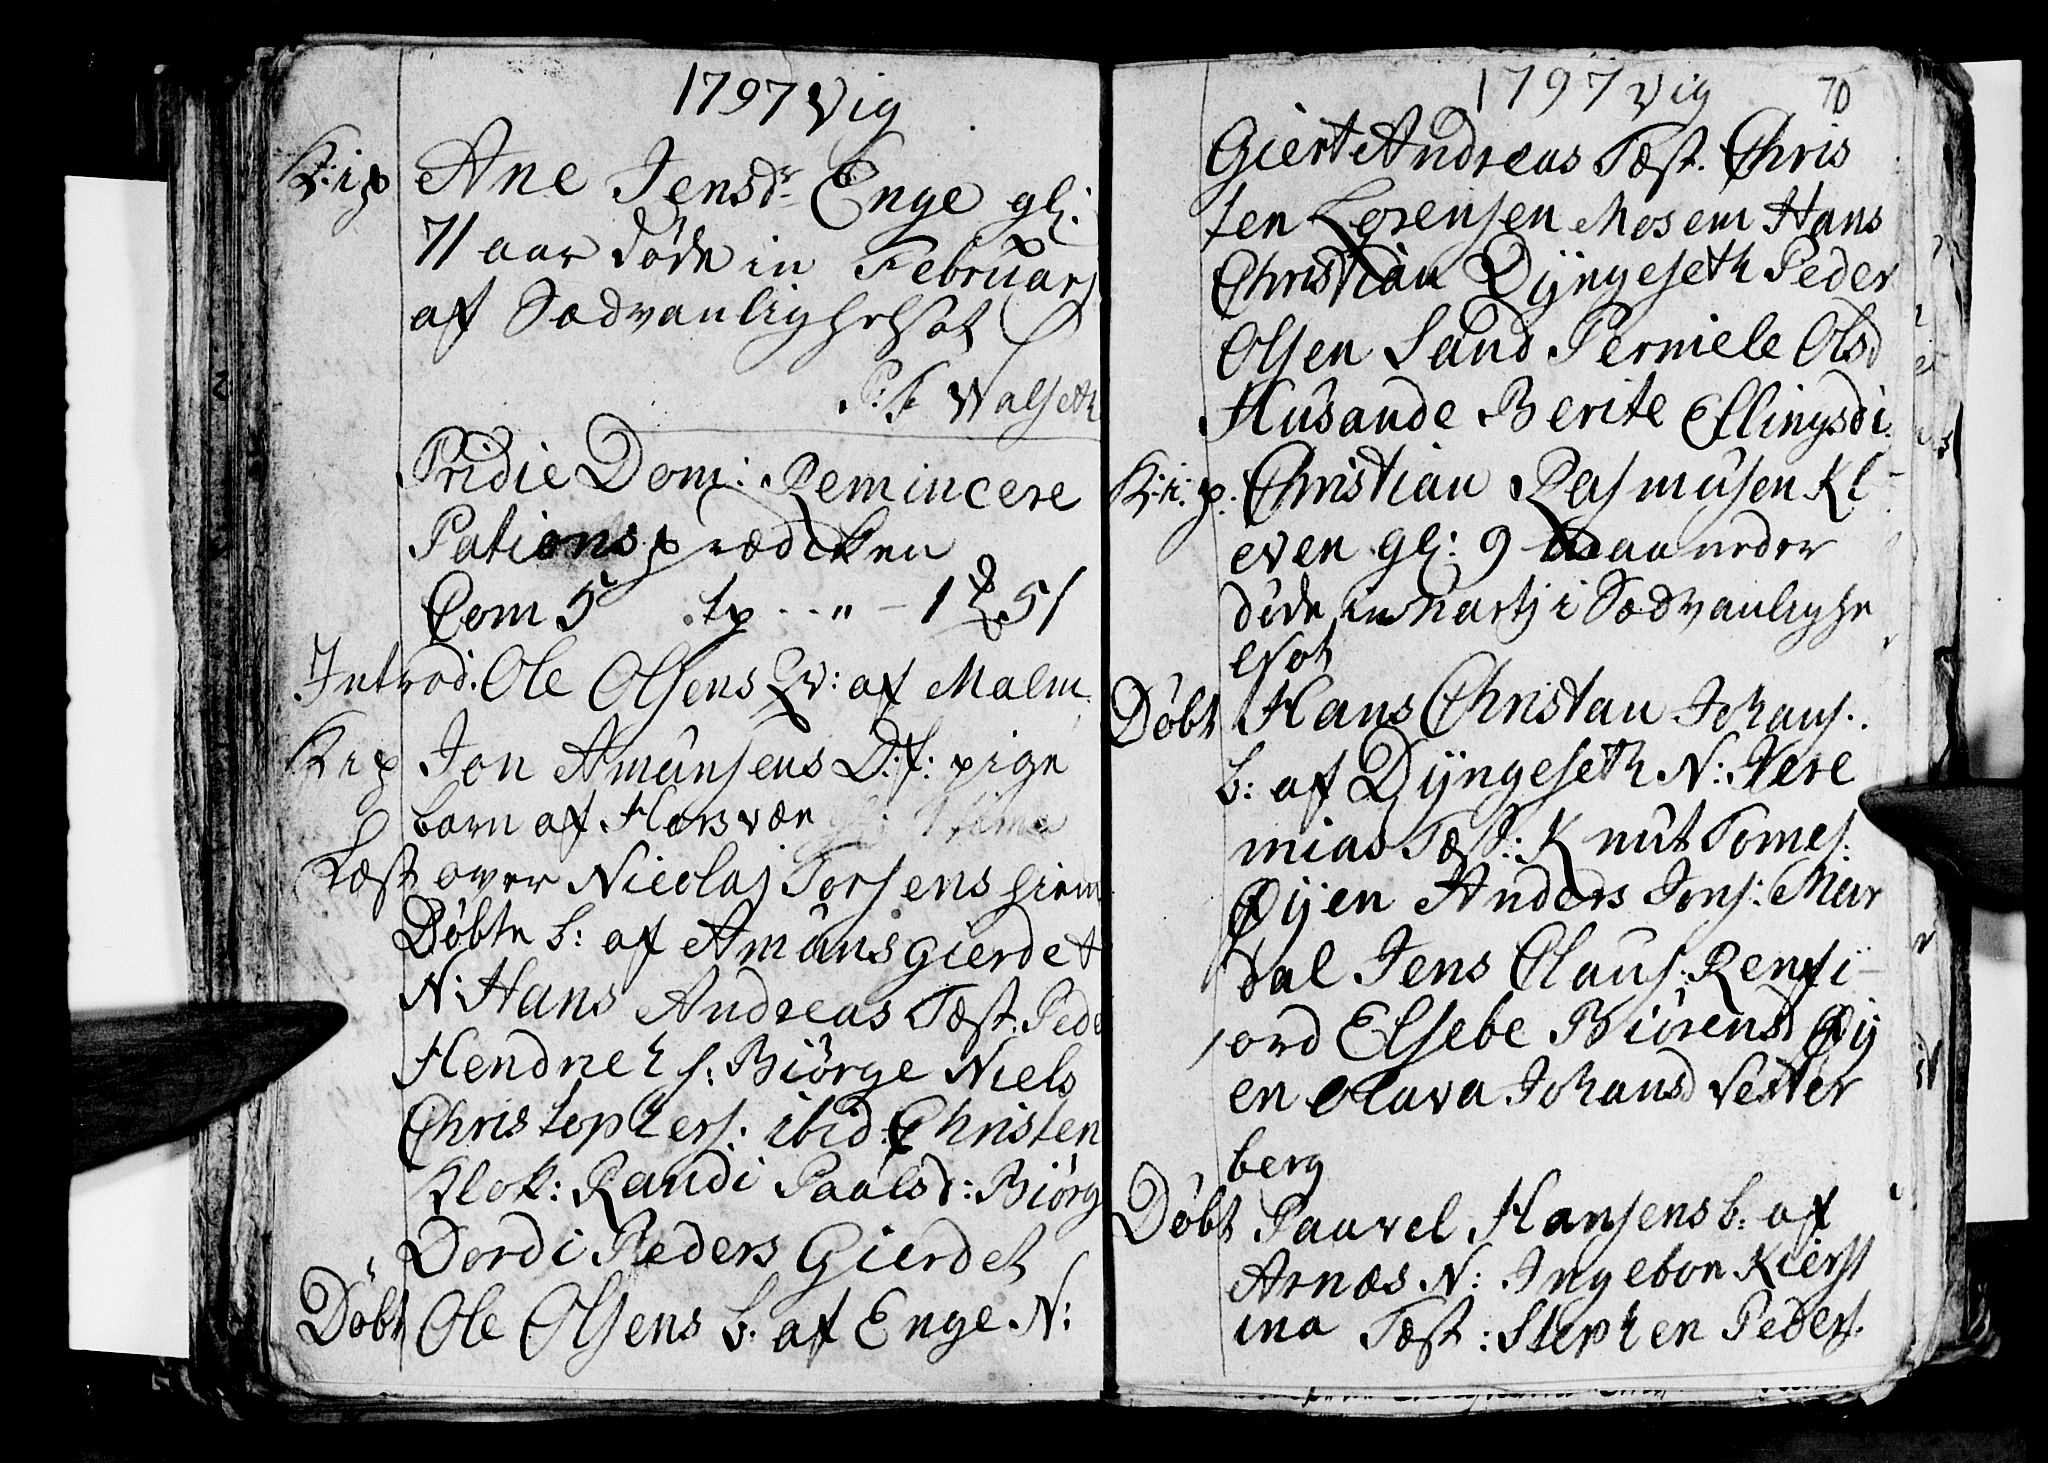 1797 Vig
K: i p Ane Jensdr Enge gl:
71 aar døde in Februarj
af Sædvanlighelsot
P: H: Walseth
Pridie Dom: Remincere
Pations prædiken
Com 5 tp - - " - 1 51
Introd. Ole Olsens Qv: af Malm
K i p Jon Amunsens D: f: pige
barn af Horsvær
Læst over Nicolaj Torsens hiem
Døbte b: af Amunsgierdet
N: Hans Andreas Tæst. Pede
Hendrich s: Biørge Niels
Christophers: ibid Christen
Klok: Randi Paalsd: Biørg
Dordi Peders Gierdet
Døbt Ole Olsens b. af Enge N:
1797 Vig 70
Giert Andreas Tæst. Chris
ten Lorensen Mosem Hans
Christian Dyngeseth Peder
Olsen Sand Perniele Olsd
Husande Berite Ellingsd:
K: i: p. Christian Rasmusen Kl
even gl: 9 maaneder
døde in Martj i Sædvanlighe
elsot
Døbt Hans Christan Johans.
b: af Dyngeseth N: Jere
mias Tæst: Knut Tomes:
Øyen Anders Jons: Mar
dal Jens Claus: Renfi
ord Elsebe Biørensd Øy
en Olava Johansd Vester
berg
Døbt Paavel Hansens b: af
Arnæs N: Ingebor Kierst
ina Tæst: Stephen Peders.